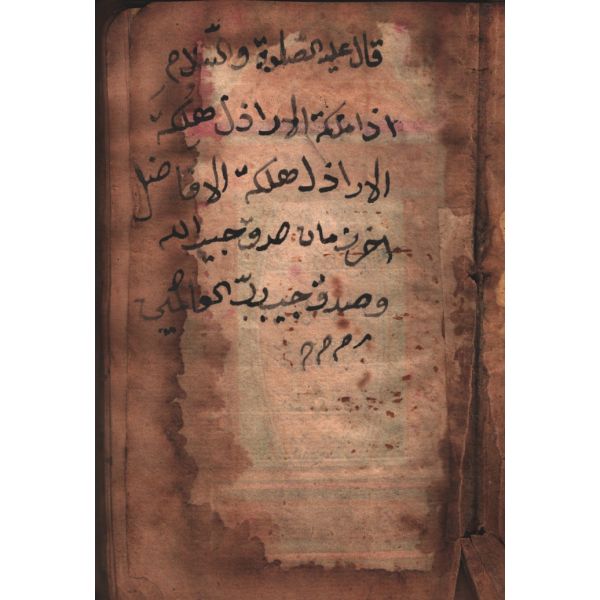 قال عليه الصلوة والسلام
اذا ملكة الاراذل هلكة
الاراذل هلكة الافاضل
اخر زمان صدق حبيب الله
وصدق حبيب ربّ العالمين